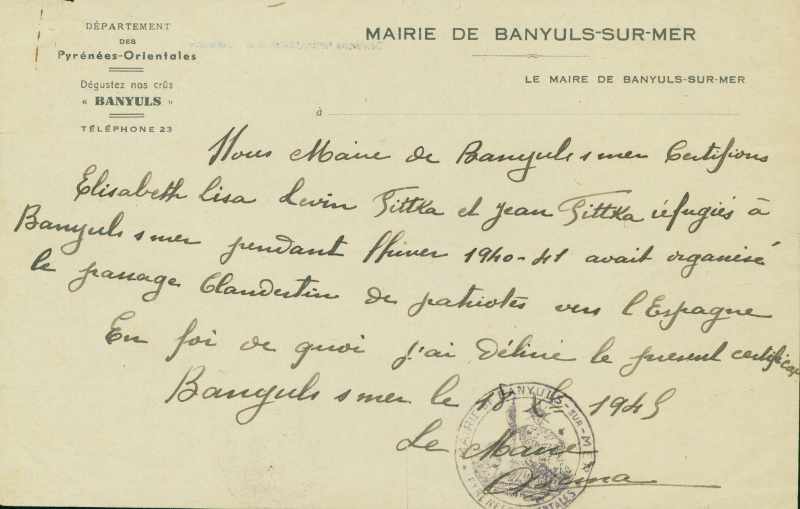 DÉPARTEMENT
DES
Pyrénées-Orientales
Dégustez nos crûs
« BANYULS »
TÉLÉPHONE 23
MAIRIE DE BANYULS-SUR-MER
LE MAIRE DE BANYULS-SUR-MER
à
Nous Maire de Banyuls s mer Certifions
Elisabeth Lisa Levin Fittka et Jean Fittka réfugiés à
Banyuls s mer pendant l'hiver 1940-41 avait organisé
le passage Clandestin de patriotes vers l'Espagne
En foi de quoi j'ai délivré le présent certificat
Banyuls s mer le 18 1945
Le Maire
MAIRIE DE BANYULS-SUR-MER